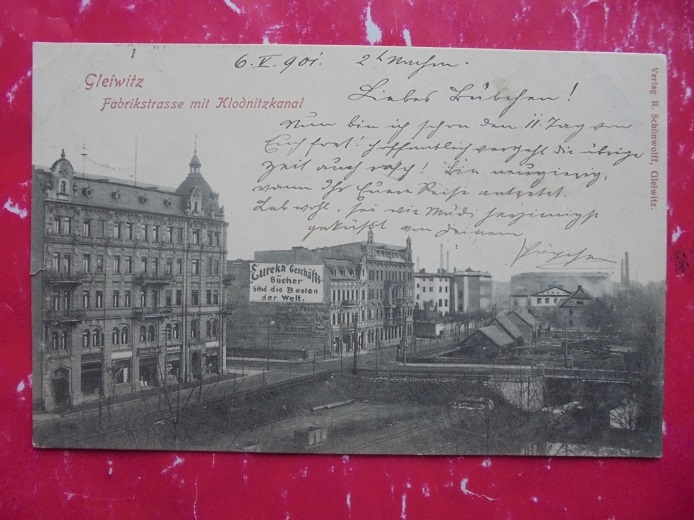 6. V. 901. 2h Nachm.
Gleiwitz
Fabrikstrasse mit Klodnitzkanal
Liebes Bübchen!
Nun bin ich schon den 11. Tag von
Euch fort! hoffentlich vergeht die übrige
Zeit auch rasch! Bin neugierig,
wann Ihr Eure Reise antretet.
Leb wohl, sei wie Mädi herzinnigst
geküßt von Deinem
Eureka Geschäfts-
Bücher
sind die Besten
der Welt.
Verlag R. Schönwolff, Gleiwitz.